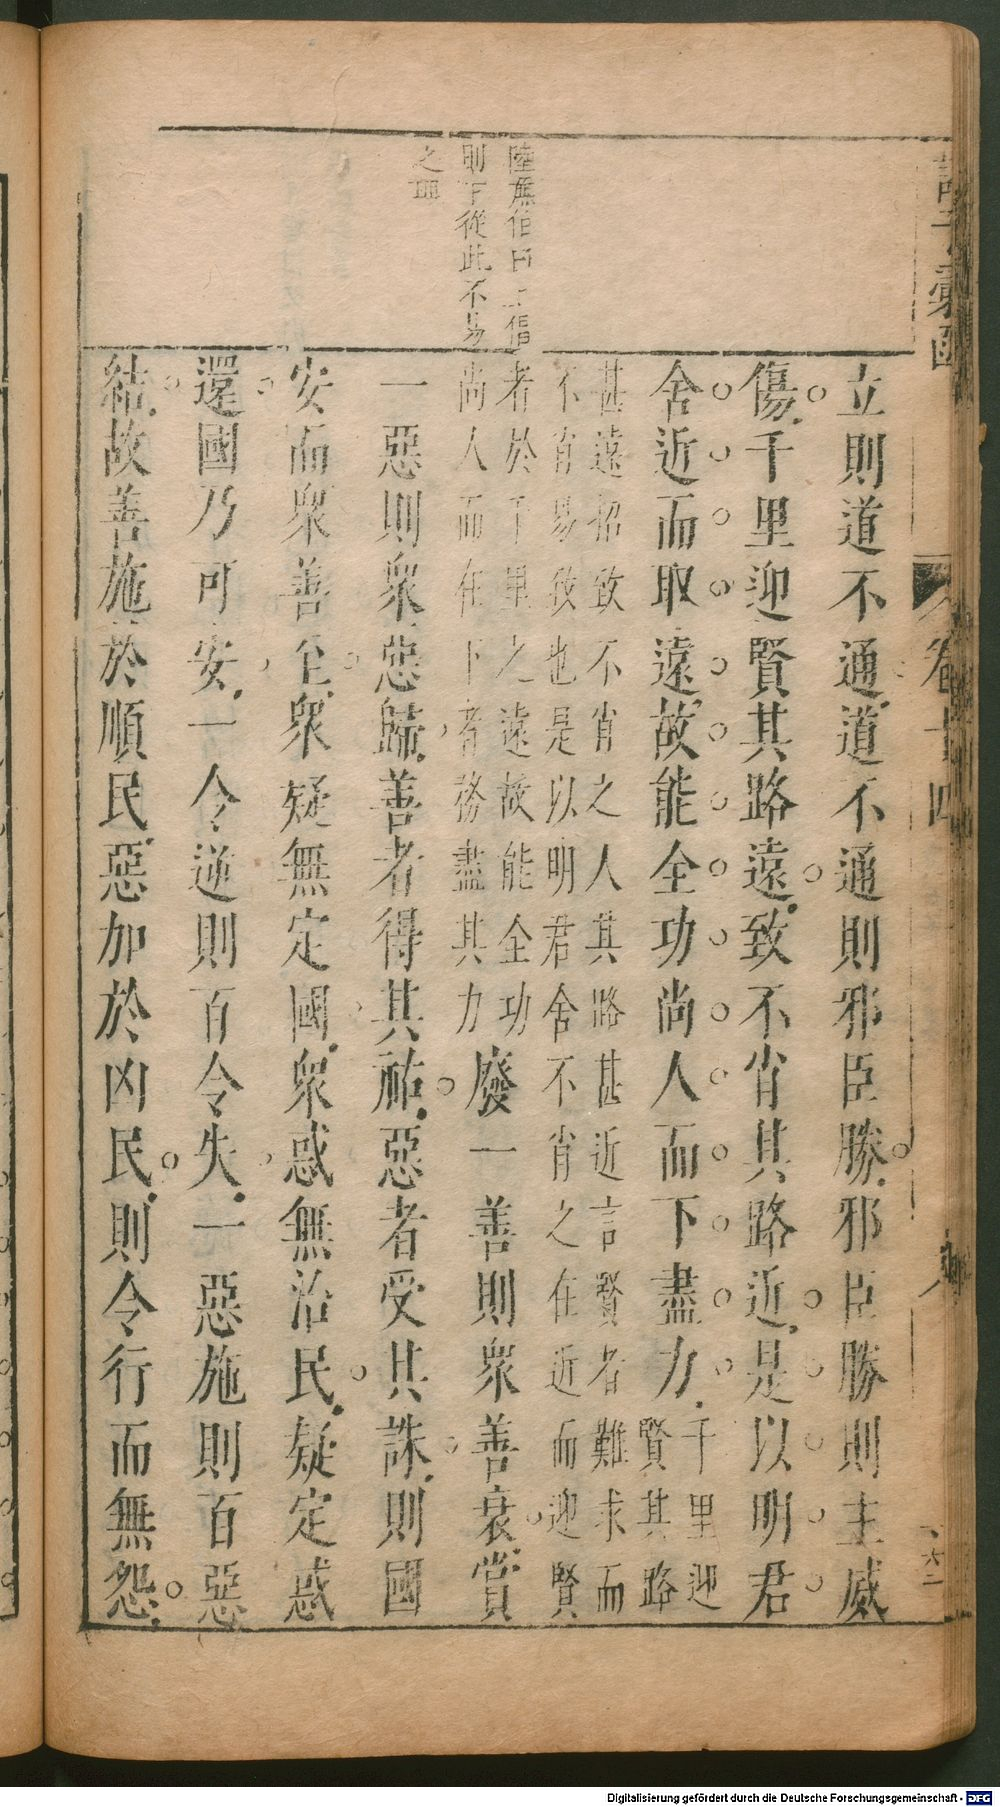 諸子彙函
卷十四
六二
陸廉伯曰上倡
則下從此不易
之理
立則道不通道不通則邪臣勝邪臣勝則主威
傷千里迎賢其路遠致不肖其路近是以明君
舍近而取遠故能全功尚人而下盡力千里迎
賢其路
甚遠招致不肖之人其路甚近言賢者難求而
不肖易致也是以明君舍不肖之在近而迎賢
者於千里之遠故能全功
尚人而在下者務盡其力
廢一善則衆善衰賞
一惡則衆惡歸善者得其祐惡者受其誅則國
安而衆善至衆疑無定國衆惑無治民疑定惑
還國乃可安一令逆則百令失一惡施則百惡
結故善施於順民惡加於凶民則令行而無怨
Digitalisierung gefördert durch die Deutsche Forschungsgemeinschaft - DFG